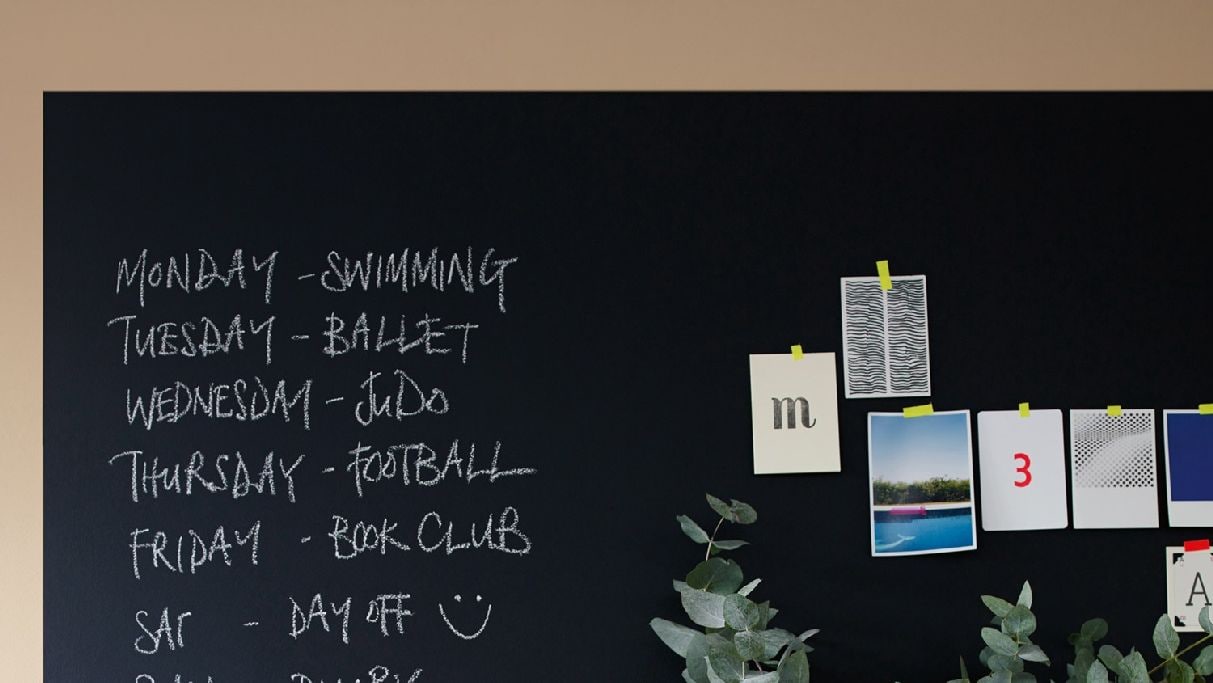 MONDAY - SWIMMING
TUESDAY - BALLET
WEDNESDAY - JUDO
THURSDAY - FOOTBALL
FRIDAY - BOOK CLUB
SAT - DAY OFF
m
3
A